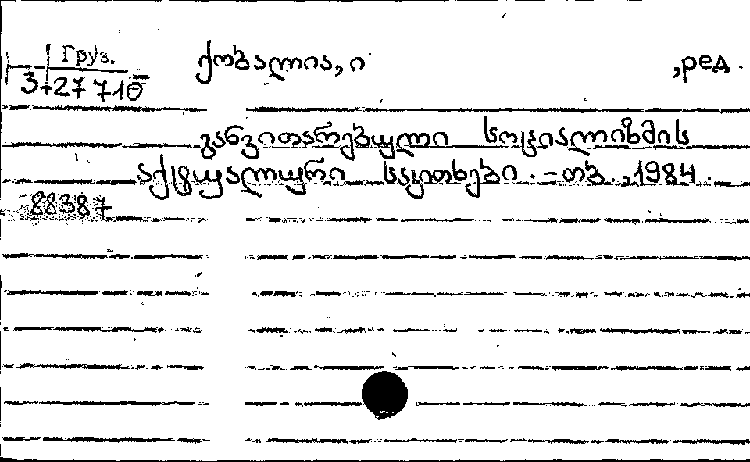 Груз. ქობალია, ი ,ред.
3-27 710
განვითარებული სოციალიზმის
აქტუალური საკითხები. - თბ., 1984.
88387